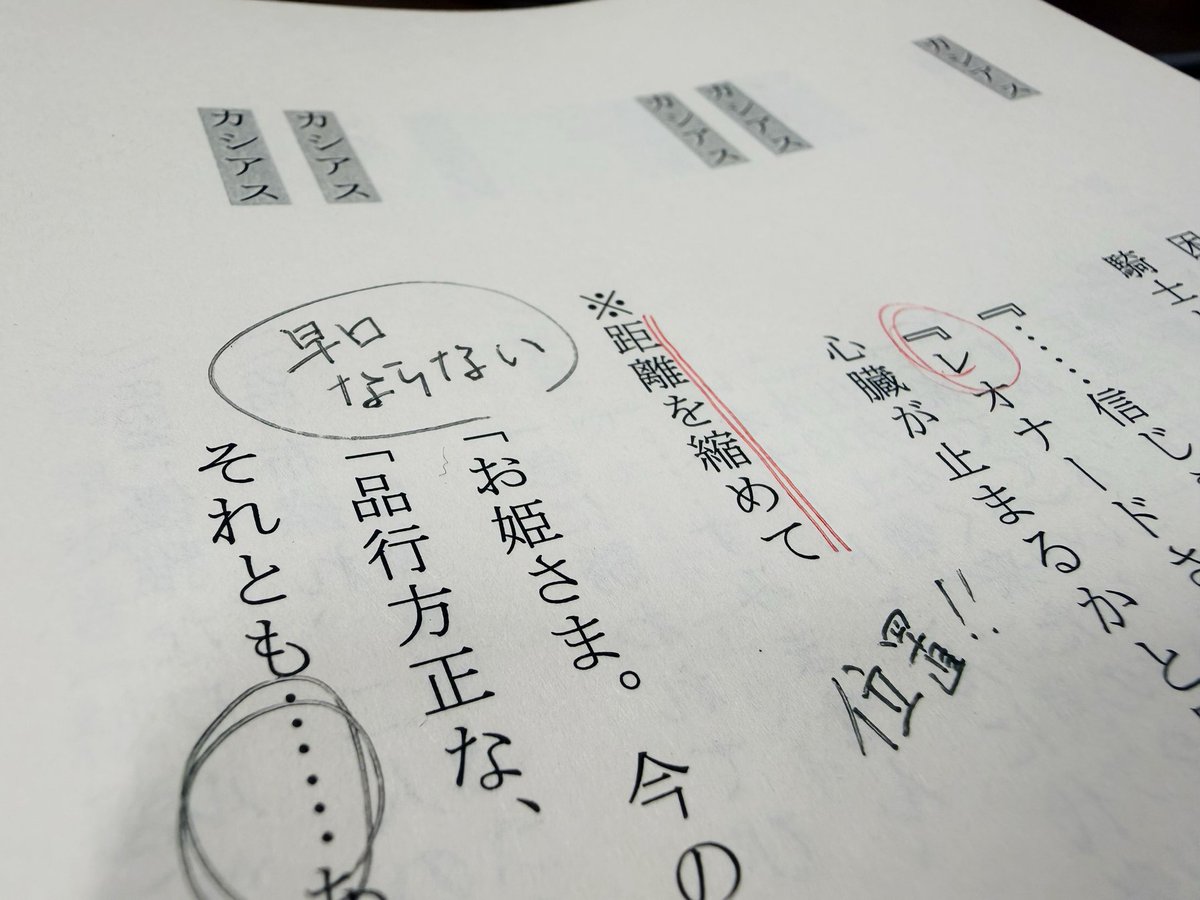 カシアス
騎士
『……信じ
カシアス
『レオナードさ
心臓が止まるかと
カシアス
位置!!
※距離を縮めて
カシアス
「お姫さま。今の
早口
ならない
カシアス
「品行方正な、
それとも……